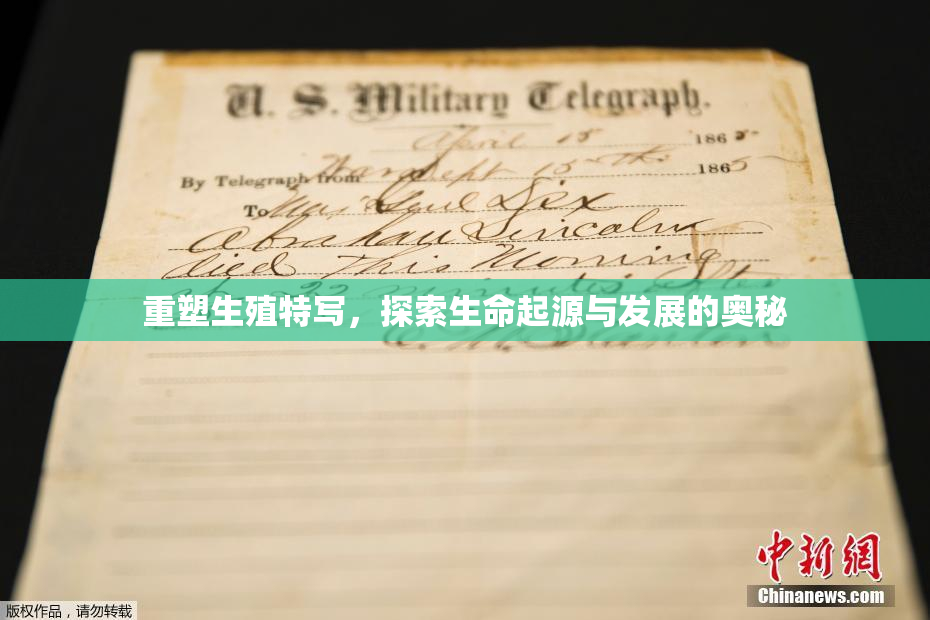 U. S. Military Telegraph.
April 15 1865
By Telegraph from War Dept 15th 1865
To Maj Genl Dix
Abraham Lincoln
died this Morning
at 22 minutes after
重塑生殖特写，探索生命起源与发展的奥秘
E. M. Stanton
中新网
Chinanews.com
版权作品，请勿转载